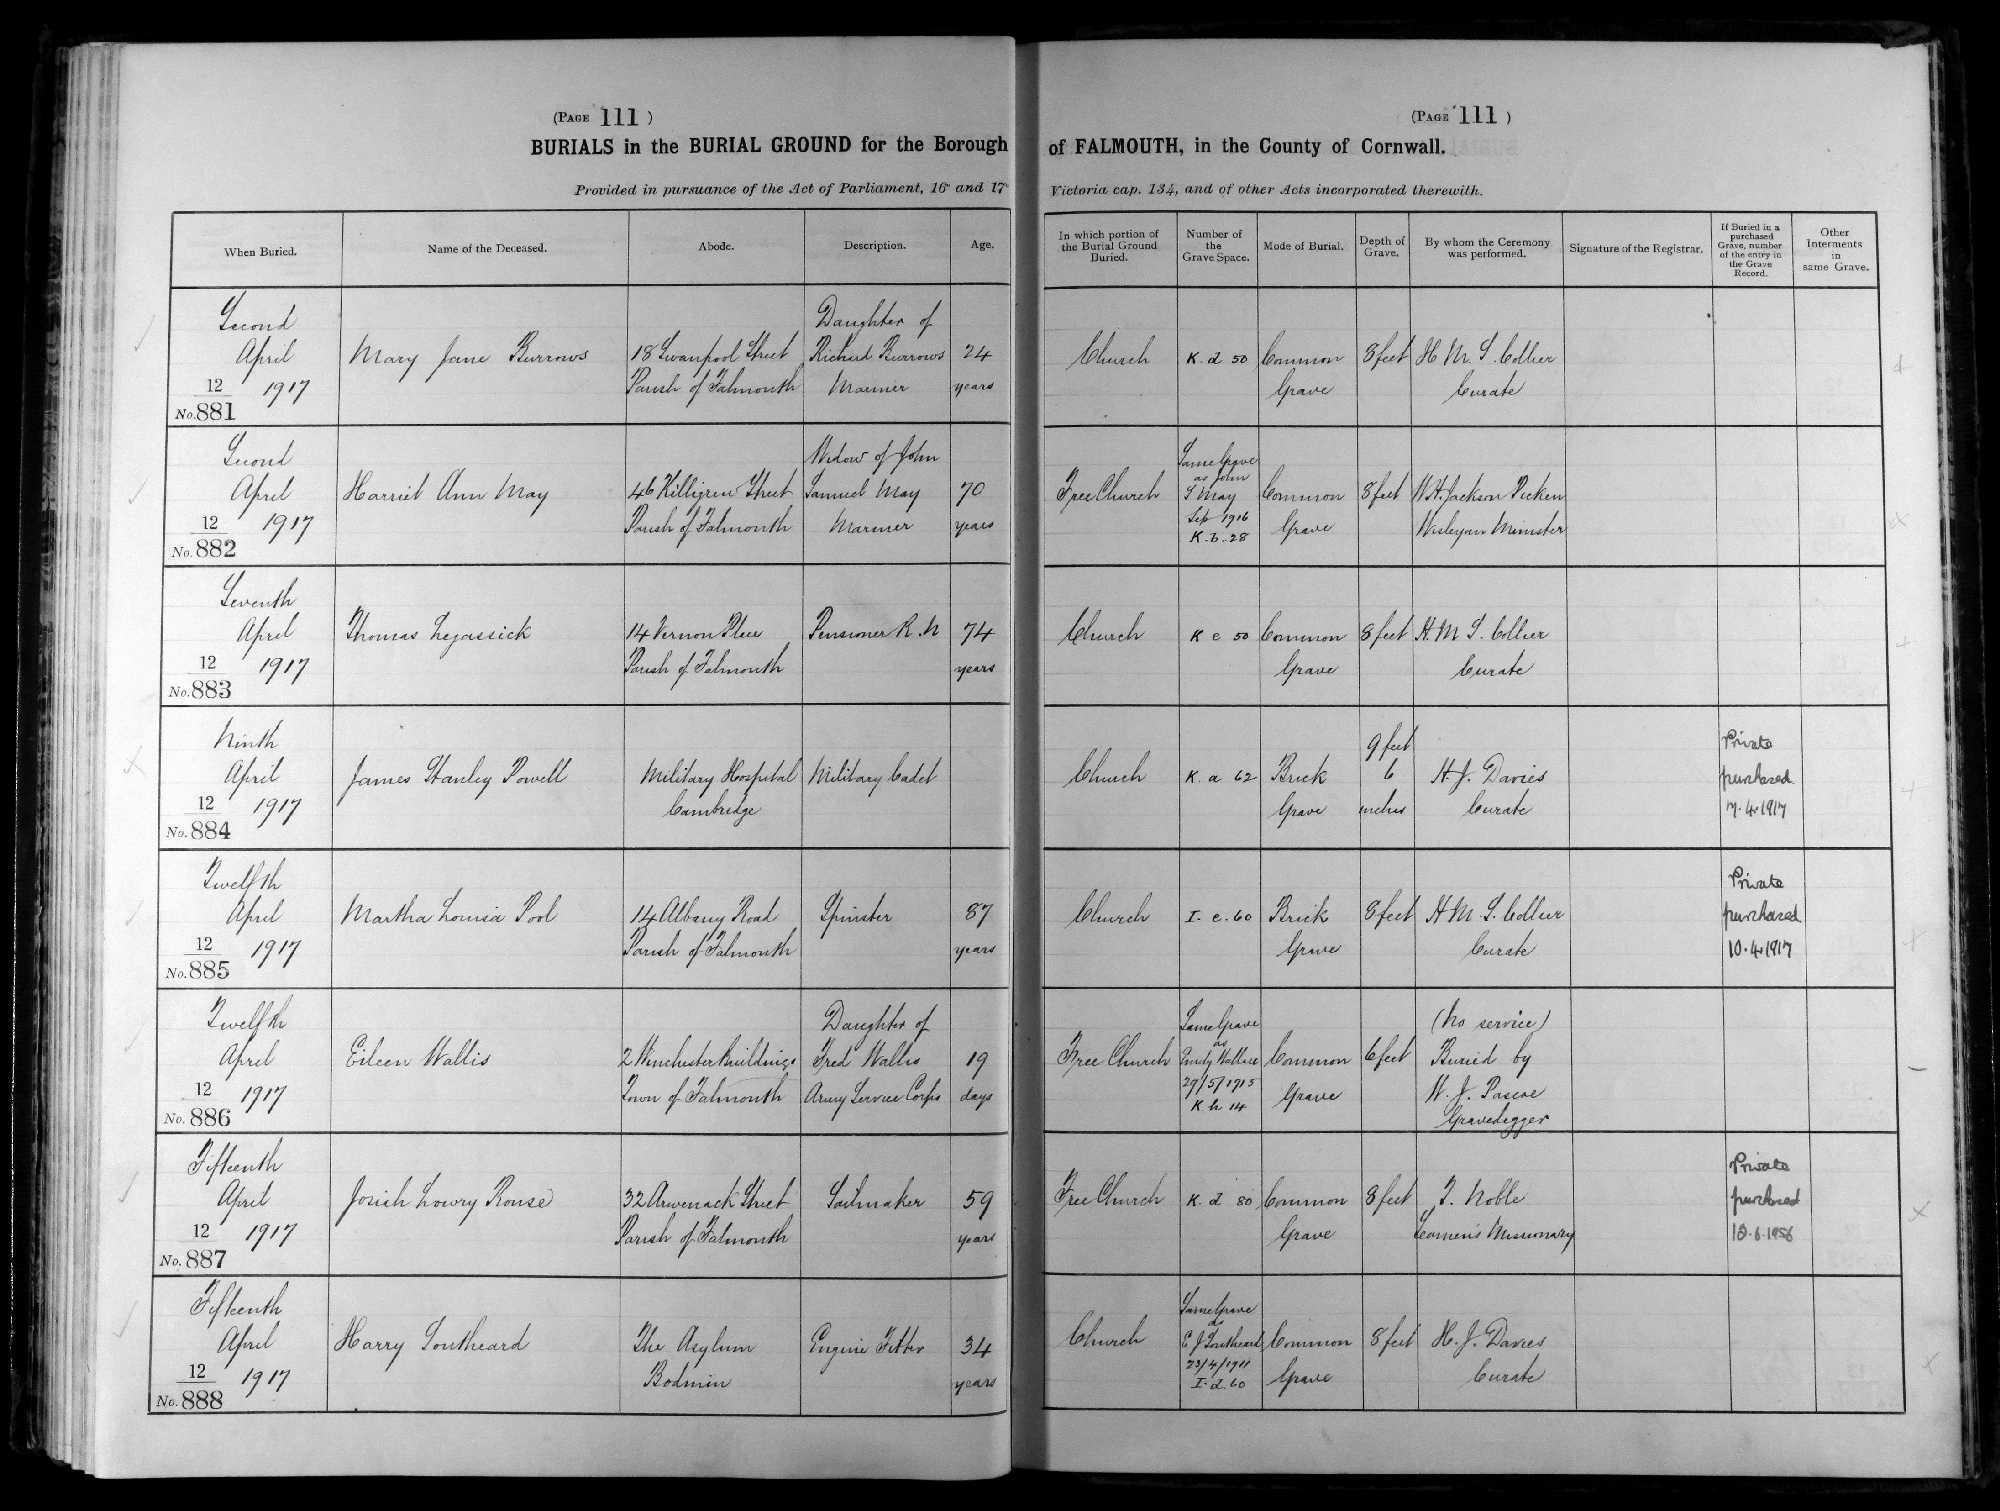 (PAGE 111 )
BURIALS in the BURIAL GROUND for the Borough
Provided in pursuance of the Act of Parliament, 16º and 17º
When Buried.
Name of the Deceased.
Abode.
Description.
Age.
Second
April
12 1917
No. 881
Mary Jane Burrows
18 Swanpool Street
Parish of Falmouth
Daughter of
Richard Burrows
Mariner
24
years
Second
April
12 1917
No. 882
Harriet Ann May
46 Killigrew Street
Parish of Falmouth
Widow of John
Samuel May
Mariner
70
years
Seventh
April
12 1917
No. 883
Thomas Legassick
14 Vernon Place
Parish of Falmouth
Pensioner R. N
74
years
Ninth
April
12 1917
No. 884
James Stanley Powell
Military Hospital
Cambridge
Military Cadet
Twelfth
April
12 1917
No. 885
Martha Louisa Pool
14 Albany Road
Parish of Falmouth
Spinster
87
years
Twelfth
April
12 1917
No. 886
Eileen Wallis
2 Winchester Buildings
Town of Falmouth
Daughter of
Fred Wallis
Army Service Corps
19
days
Fifteenth
April
12 1917
No. 887
Josiah Lowry Rouse
32 Arwenack Street
Parish of Falmouth
Sailmaker
59
years
Fifteenth
April
12 1917
No. 888
Harry Southeard
The Asylum
Bodmin
Engine Fitter
34
years
(PAGE 111 )
of FALMOUTH, in the County of Cornwall.
Victoria cap. 134, and of other Acts incorporated therewith.
In which portion of
the Burial Ground
Buried.
Number of
the
Grave Space.
Mode of Burial.
Depth of
Grave.
By whom the Ceremony
was performed.
Signature of the Registrar.
If Buried in a
purchased
Grave, number
of the entry in
the Grave
Record.
Other
Interments
in
same Grave.
Church
K. d 50
Common
Grave
8 feet
H. M. S. Collier
Curate
Free Church
Same Grave
as John
S May
Sep 1916
K. b. 28
Common
Grave
8 feet
W. H. Jackson Picken
Wesleyan Minister
Church
K c 50
Common
Grave
8 feet
H. M. S. Collier
Curate
Church
K. a 62
Brick
Grave
9 feet
6
inches
H. J. Davies
Curate
Private
purchased
7.4.1917
Church
I. c. 60
Brick
Grave
8 feet
H. M. S. Collier
Curate
Private
purchased
10.4.1917
Free Church
Same Grave
as
Wallace
29/5/1915
K h 14
Common
Grave
6 feet
(No service)
Buried by
W. J. Pascoe
Gravedigger
Free Church
K. d 80
Common
Grave
8 feet
T. Noble
Seamen's Missionary
Private
purchased
Church
Same Grave
as
E J Southeard
23/4/1911
I. d. 60
Common
Grave
8 feet
H. J. Davies
Curate